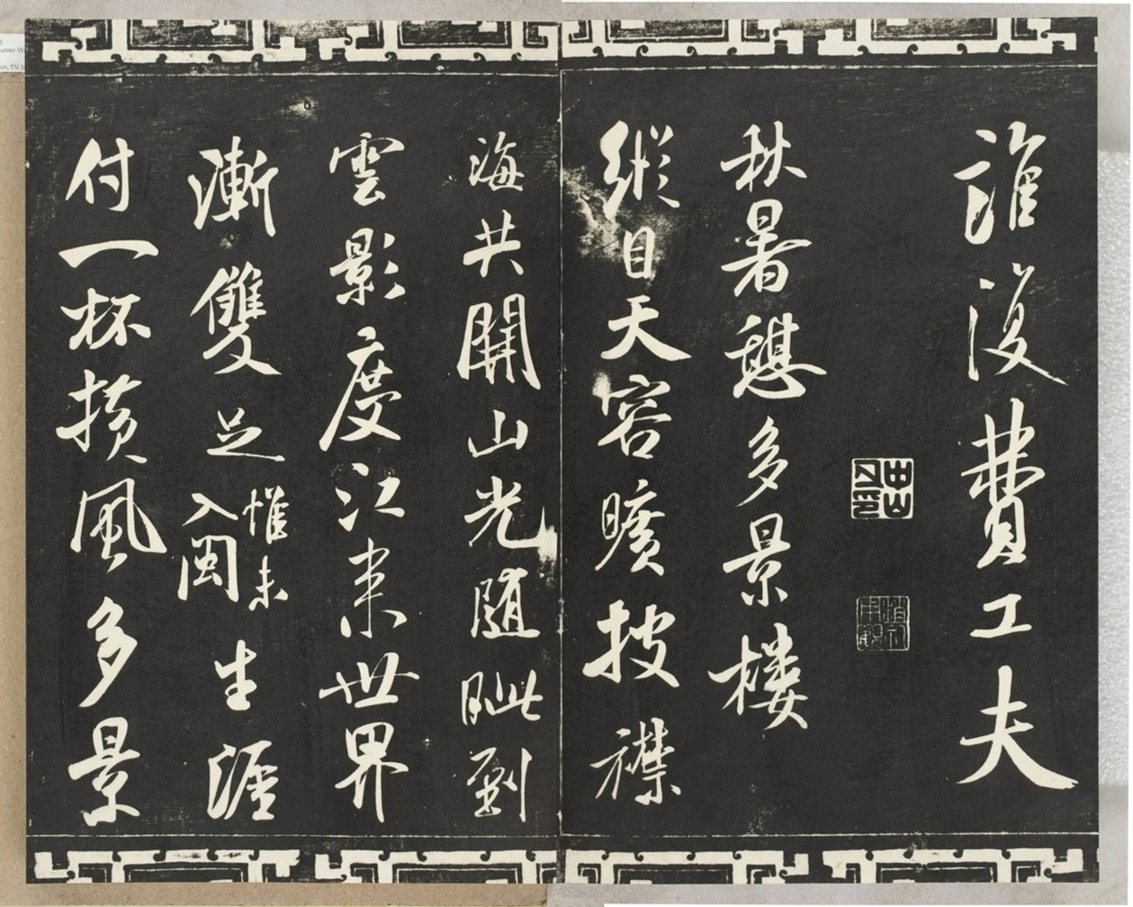 誰復費工夫
秋暑憩多景樓
縱目天容曠披襟
海共開山光隨眦到
雲影度江來世界
漸雙足惟未入閩生涯
付一杯橫風多景